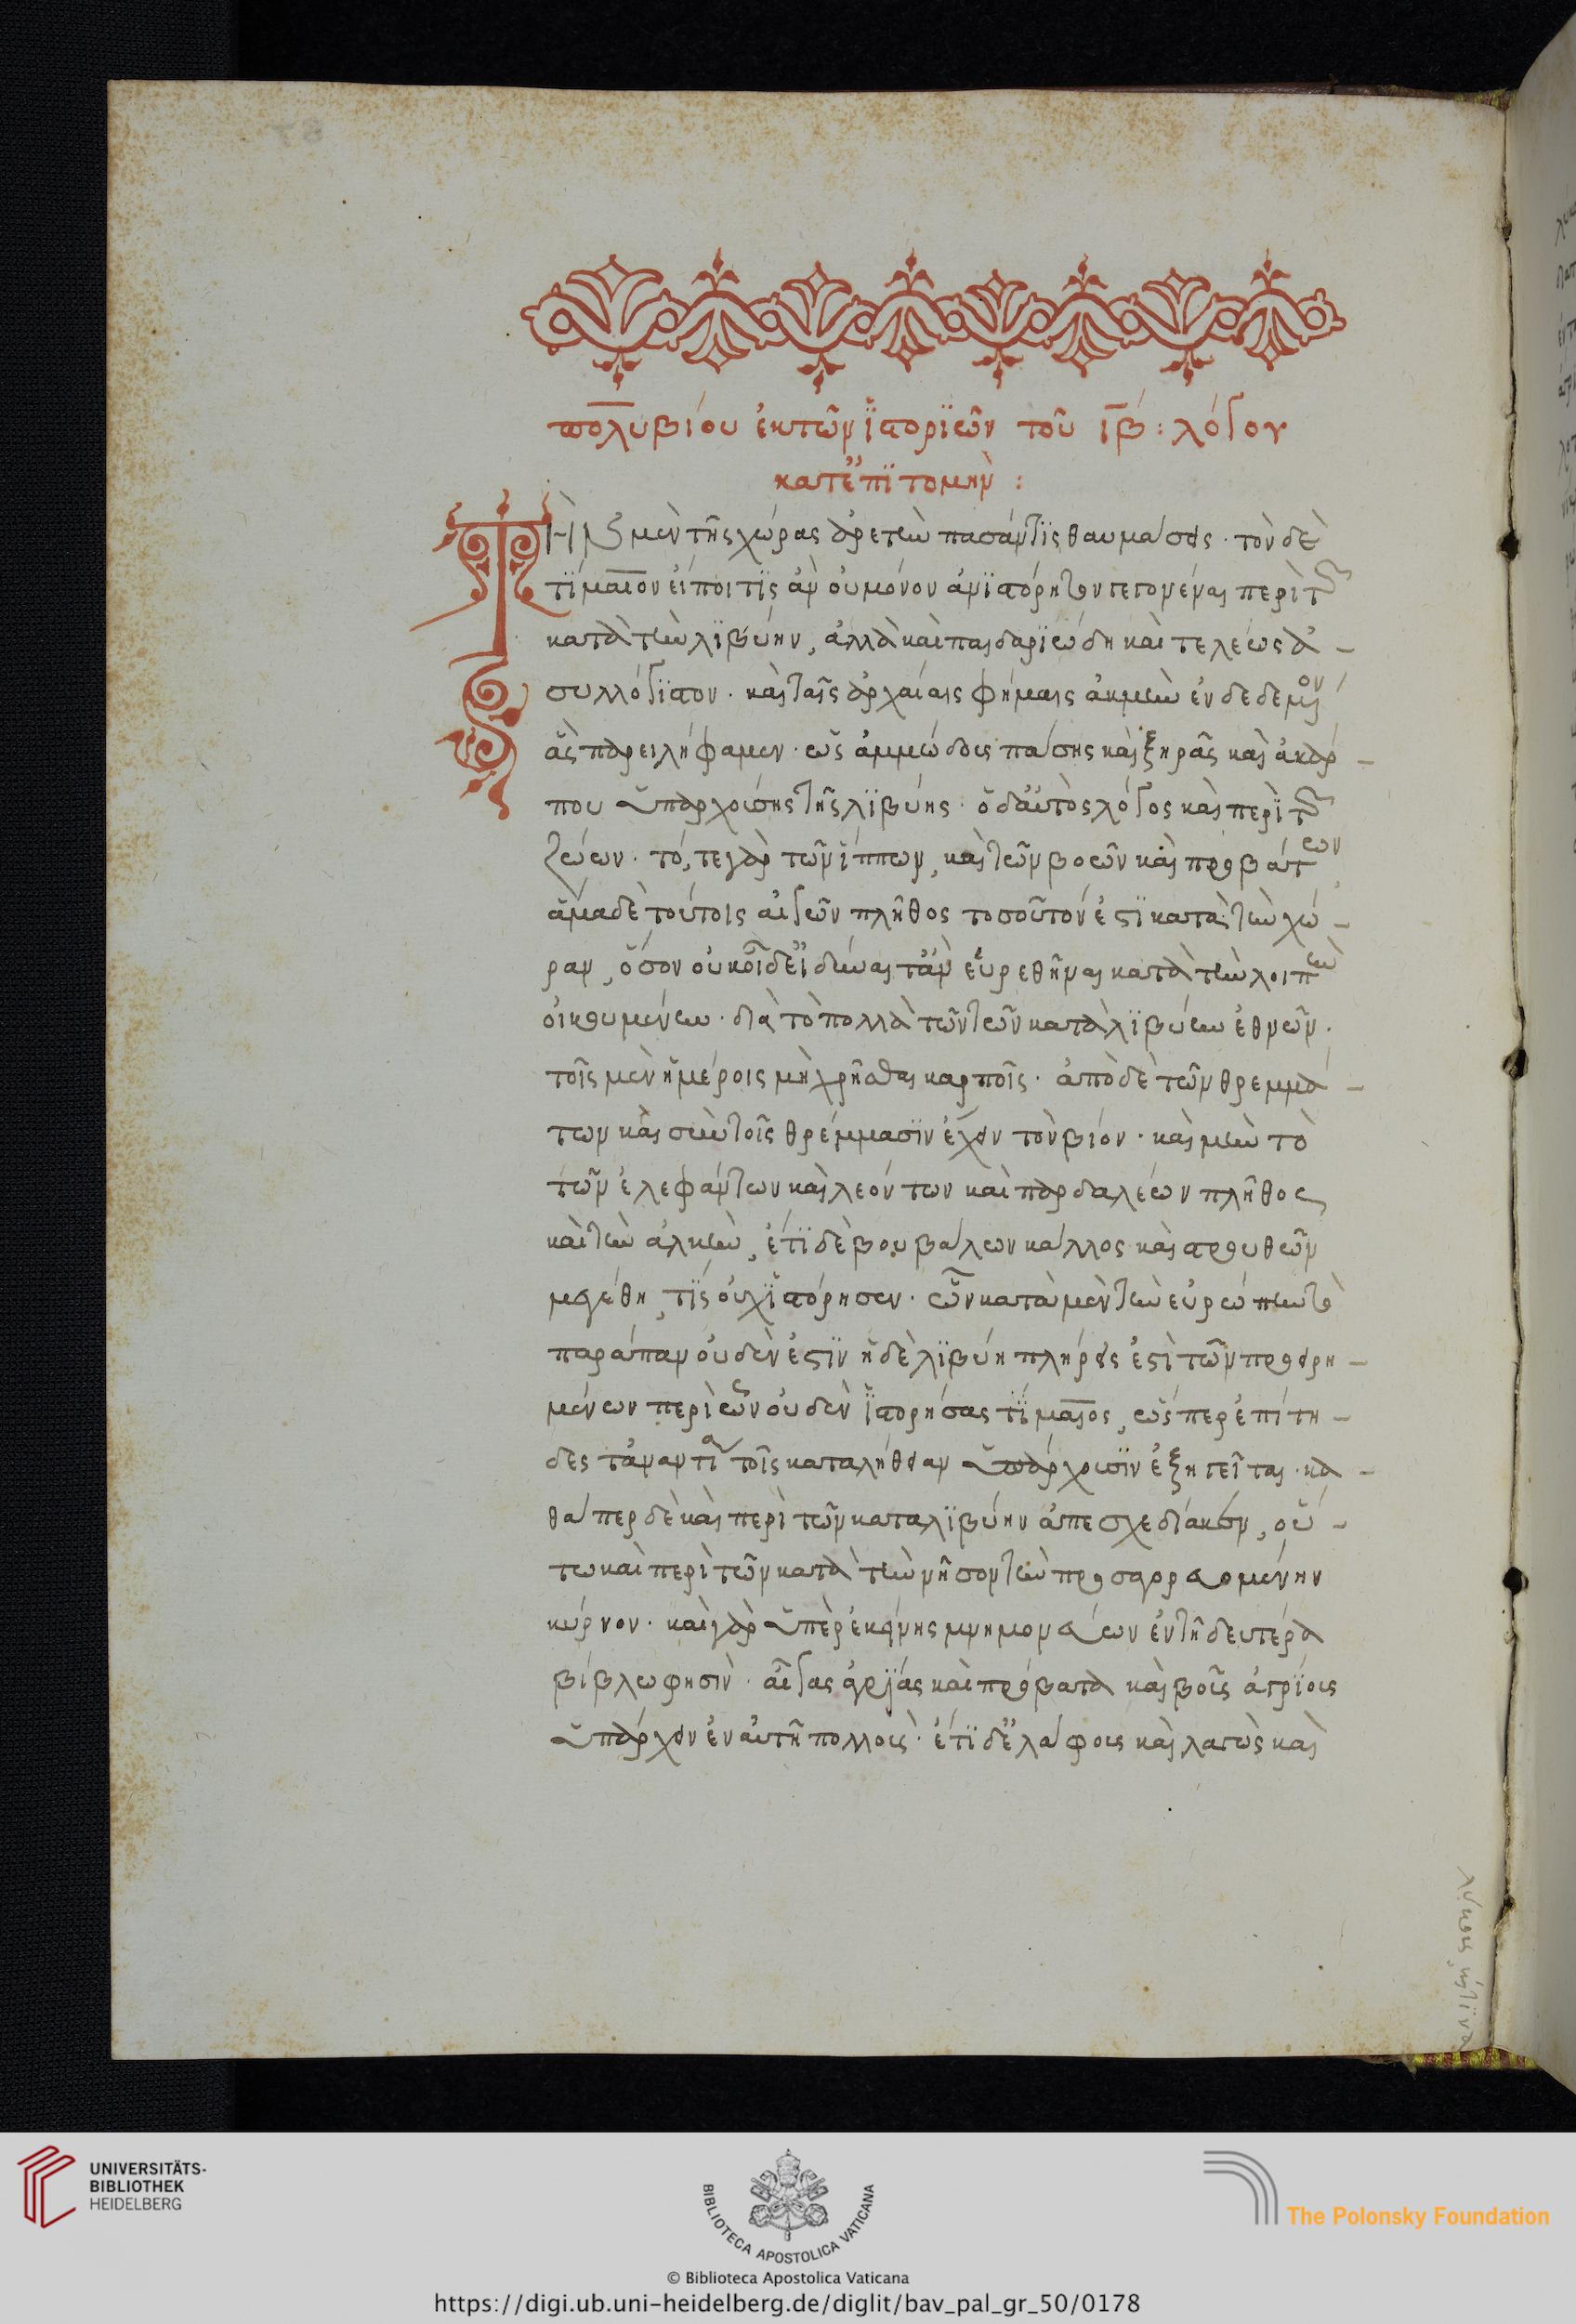 πολυβίου ἐκ τῶν ἱστοριῶν τοῦ ιβ: λόγου
κατ' ἐπιτομὴν:
Τὴν μὲν τῆς χώρας ἀρετὴν πᾶς ἄν τις θαυμάσειε. τὸν δὲ
τίμαιον εἴποι τις ἂν οὐ μόνον ἀνιστόρητον γεγονέναι περὶ τῶν
κατὰ τὴν λιβύην, ἀλλὰ καὶ παιδαριώδη καὶ τελέως ἀ-
συλλόγιστον. καὶ ταῖς ἀρχαίαις φήμαις ἀκμὴν ἐνδεδεμένον
ἃς παρειλήφαμεν. ὡς ἀμμώδους πάσης καὶ ξηρᾶς καὶ ἀκάρ-
που ὑπαρχούσης τῆς λιβύης. ὁ δ' αὐτὸς λόγος καὶ περὶ τῶν
ζώων. τό, τε γὰρ τῶν ἵππων, καὶ τῶν βοῶν καὶ προβάτων,
ἅμα δὲ τούτοις αἰγῶν πλῆθος τοσοῦτόν ἐστι κατὰ τὴν χώ-
ραν, ὅσον οὐκ οἶδ' εἰ δύναιτ' ἂν εὑρεθῆναι κατὰ τὴν λοιπὴν
οἰκουμένην. διὰ τὸ πολλὰ τῶν τῶν κατὰ λιβύην ἐθνῶν.
τοῖς μὲν ἡμέροις μὴ χρῆσθαι καρποῖς. ἀπὸ δὲ τῶν θρεμμά-
των καὶ σὺν τοῖς θρέμμασιν ἔχειν τὸν βίον. καὶ μὴν τὸ
τῶν ἐλεφάντων καὶ λεόντων καὶ παρδαλέων πλῆθος
καὶ τὴν ἀλκὴν, ἔτι δὲ βουβάλων κάλλος καὶ στρουθῶν
μεγέθη, τίς οὐχ ἱστόρησεν. ὧν κατὰ μὲν τὴν εὐρώπην τὸ
παράπαν οὐδὲν ἐστιν ἡ δὲ λιβύη πλήρης ἐστὶ τῶν προειρη-
μένων περὶ ὧν οὐδὲν ἱστορήσας τίμαιος, ὥσπερ ἐπίτη-
δες τἀναντία τοῖς κατ' ἀλήθειαν ὑπάρχουσιν ἐξηγεῖται. κα-
θάπερ δὲ καὶ περὶ τῶν κατὰ λιβύην ἀπεσχεδίακεν, οὕ-
τω καὶ περὶ τῶν κατὰ τὴν νῆσον τὴν προσαγορευομένην
κύρνον. καὶ γὰρ ὑπὲρ ἐκείνης μνημονεύων ἐν τῇ δευτέρᾳ
βίβλῳ φησὶν. αἶγας ἀγρίας καὶ πρόβατα καὶ βοῦς ἀγρίους
ὑπάρχειν ἐν αὐτῇ πολλοὺς. ἔτι δ' ἐλάφους καὶ λαγὼς καὶ
λύκους, καί τινα
UNIVERSITÄTS-
BIBLIOTHEK
HEIDELBERG
BIBLIOTECA APOSTOLICA VATICANA
The Polonsky Foundation
© Biblioteca Apostolica Vaticana
https://digi.ub.uni-heidelberg.de/diglit/bav_pal_gr_50/0178